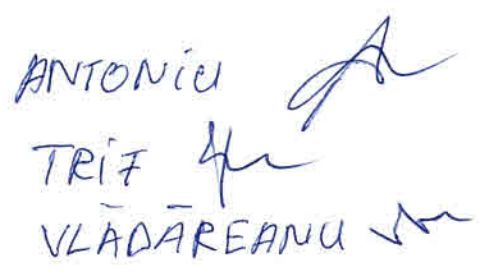 ANTONiu
TRiF
VLĂDĂREANU